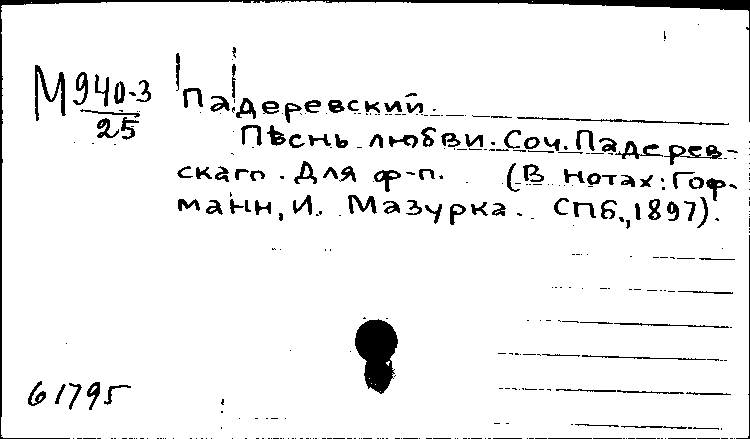 М940-3
25
Падеревский.
Пѣснь любви. Соч. Падерев-
скаго. Для ф-п. (В нотах: Гоф-
манн, И. Мазурка. СПб., 1897).
61795